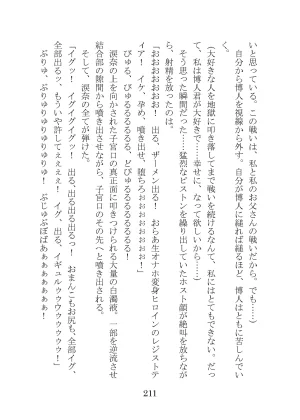 いと思っている。この戦いは、私と私のお父さんの戦いだから。でも……）
　自分から博人を視線から外す。自分が博人に縋れば縋るほど、博人はともに苦しんでいく。
（大好きな人を地獄に叩き落してまで戦いを続けるなんて、私にはとてもできない。だって、私は博人君が大好きで……幸せに、なって欲しいから……）
　そう思った瞬間だった……猛烈なピストンを繰り出していたホスト顔が絶叫を放ちながら、射精を放ったのは。
「おおおおおおお！　出る、ザーメン出る！　おらあ生オナホ変身ヒロインのレジスティア！　イケ、孕め、噴き出せ、堕ちろおおおおおおお！」
　びゅる、びゅるるるるるる、どびゅるるるるるる！
　涙奈の上を向かされた子宮口の真正面に叩きつけられる大量の白濁液。一部を逆流させ結合部の隙間から噴き出させながら、子宮口のその先へと噴き出される。
　そして、涙奈の全てが弾けた。
「イグッ！　イグイグイグッ！　出る、出る出る出るっ！　おまんこもお尻も、全部イグ、全部出るッ、もういや許してぇぇぇぇ！　イグ、出る、イギュルゥゥウウウウウウ！」
　ぶりゅ、ぶりゅりゅりゅりゅりゅ！　ぶじゅぶぼばあぁぁぁぁぁぁぁ！
211